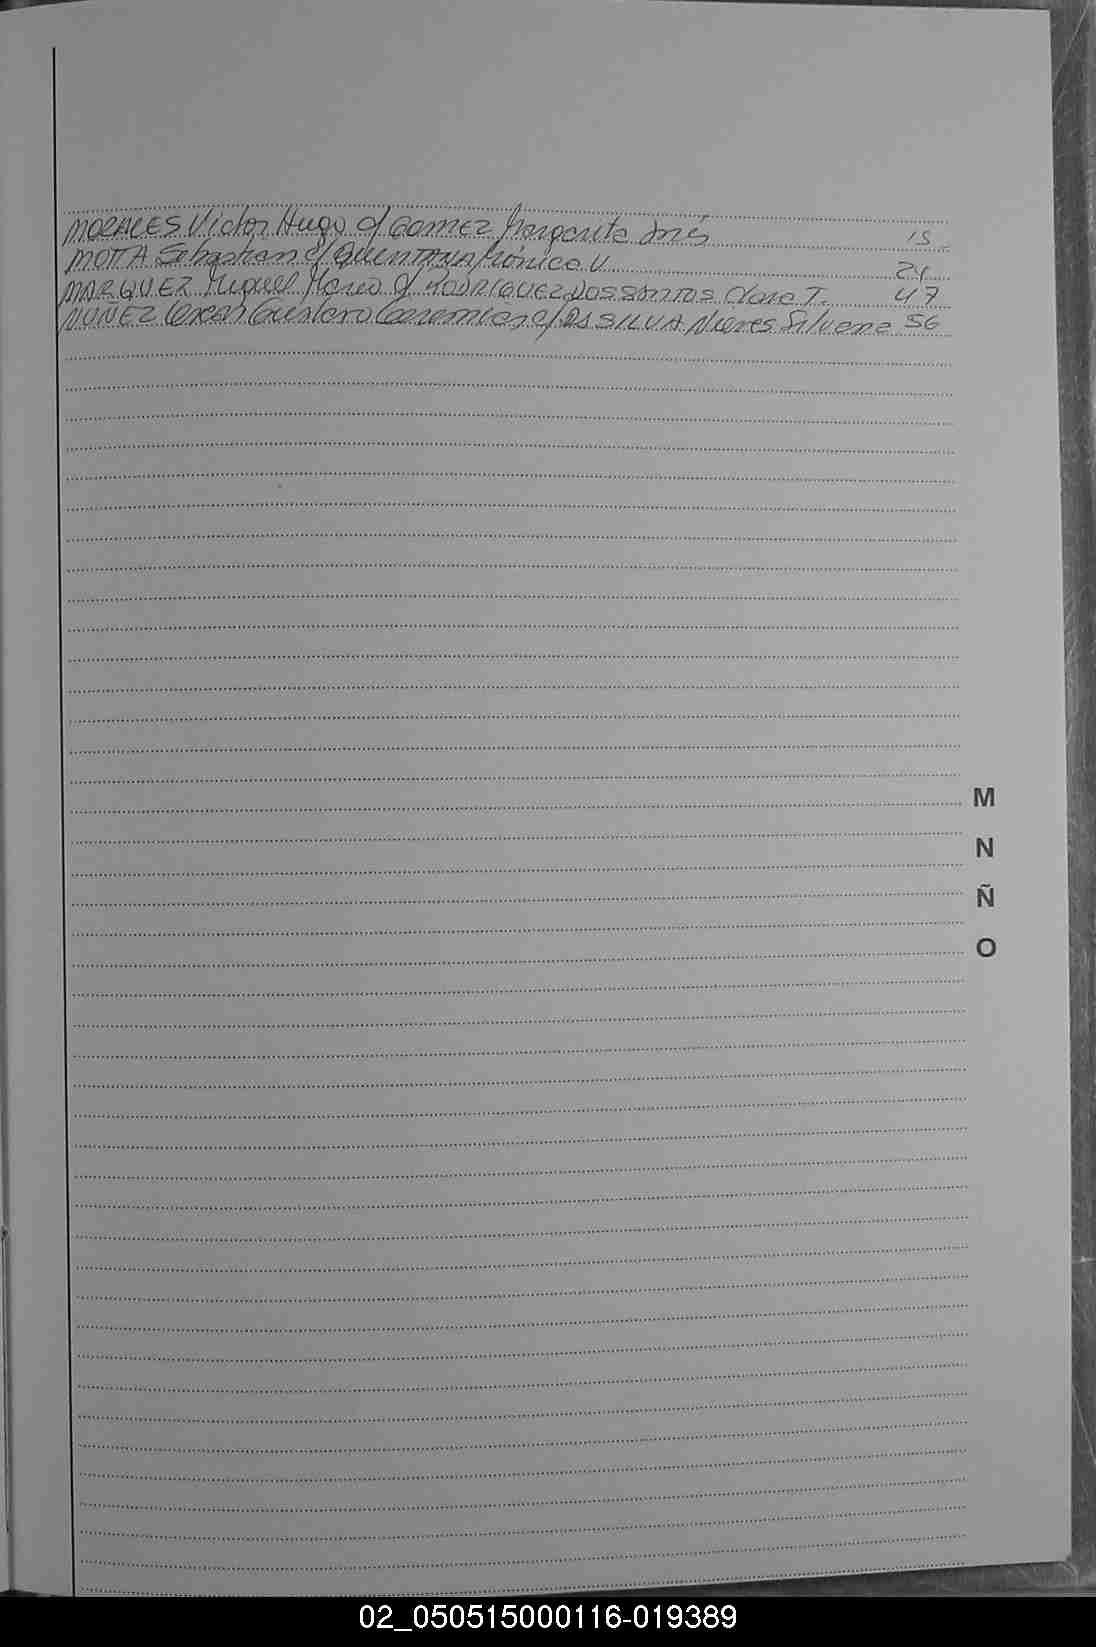 MORALES Victor Hugo c/ GOMEZ Margarita Inés 15
MOTTA Sebastian c/ QUINTANA Mónica V. 24
MARQUEZ Miguel Mario c/ RODRIGUEZ DOS SANTOS Clara T. 47
NUÑEZ Gustavo c/ DA SILVA Nieves Silvana 56
M
N
Ñ
O
02_050515000116-019389